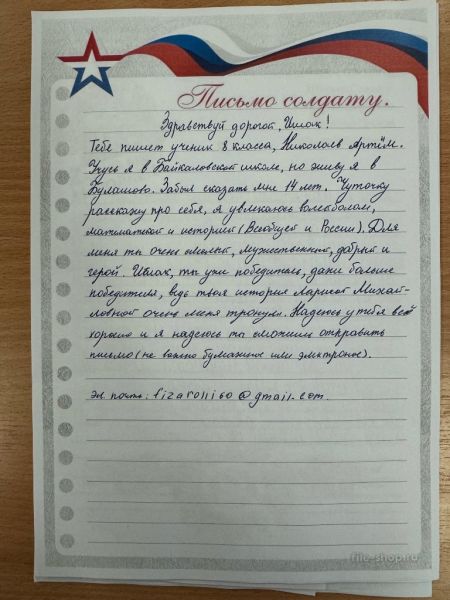 Письмо солдату.
Здравствуй дорогой, Ишак!
Тебе пишет ученик 8 класса, Николаев Артём.
Учусь я в Байкаловской школе, но живу я в
Булашово. Забыл сказать мне 14 лет. Чуточку
расскажу про себя, я увлекаюсь волейболом,
математикой и историей (Всеобщей и России). Для
меня ты очень смелый, мужественный, добрый и
герой. Ты уже победитель, даже больше
победителя, ведь твоя история Михай-
ловной очень меня тронула. Надеюсь у тебя всё
хорошо и я надеюсь ты сможешь отправить
письмо (не важно бумажное или электроное).
эл. почта: fizarolli60@gmail.com
filu-shop.ru